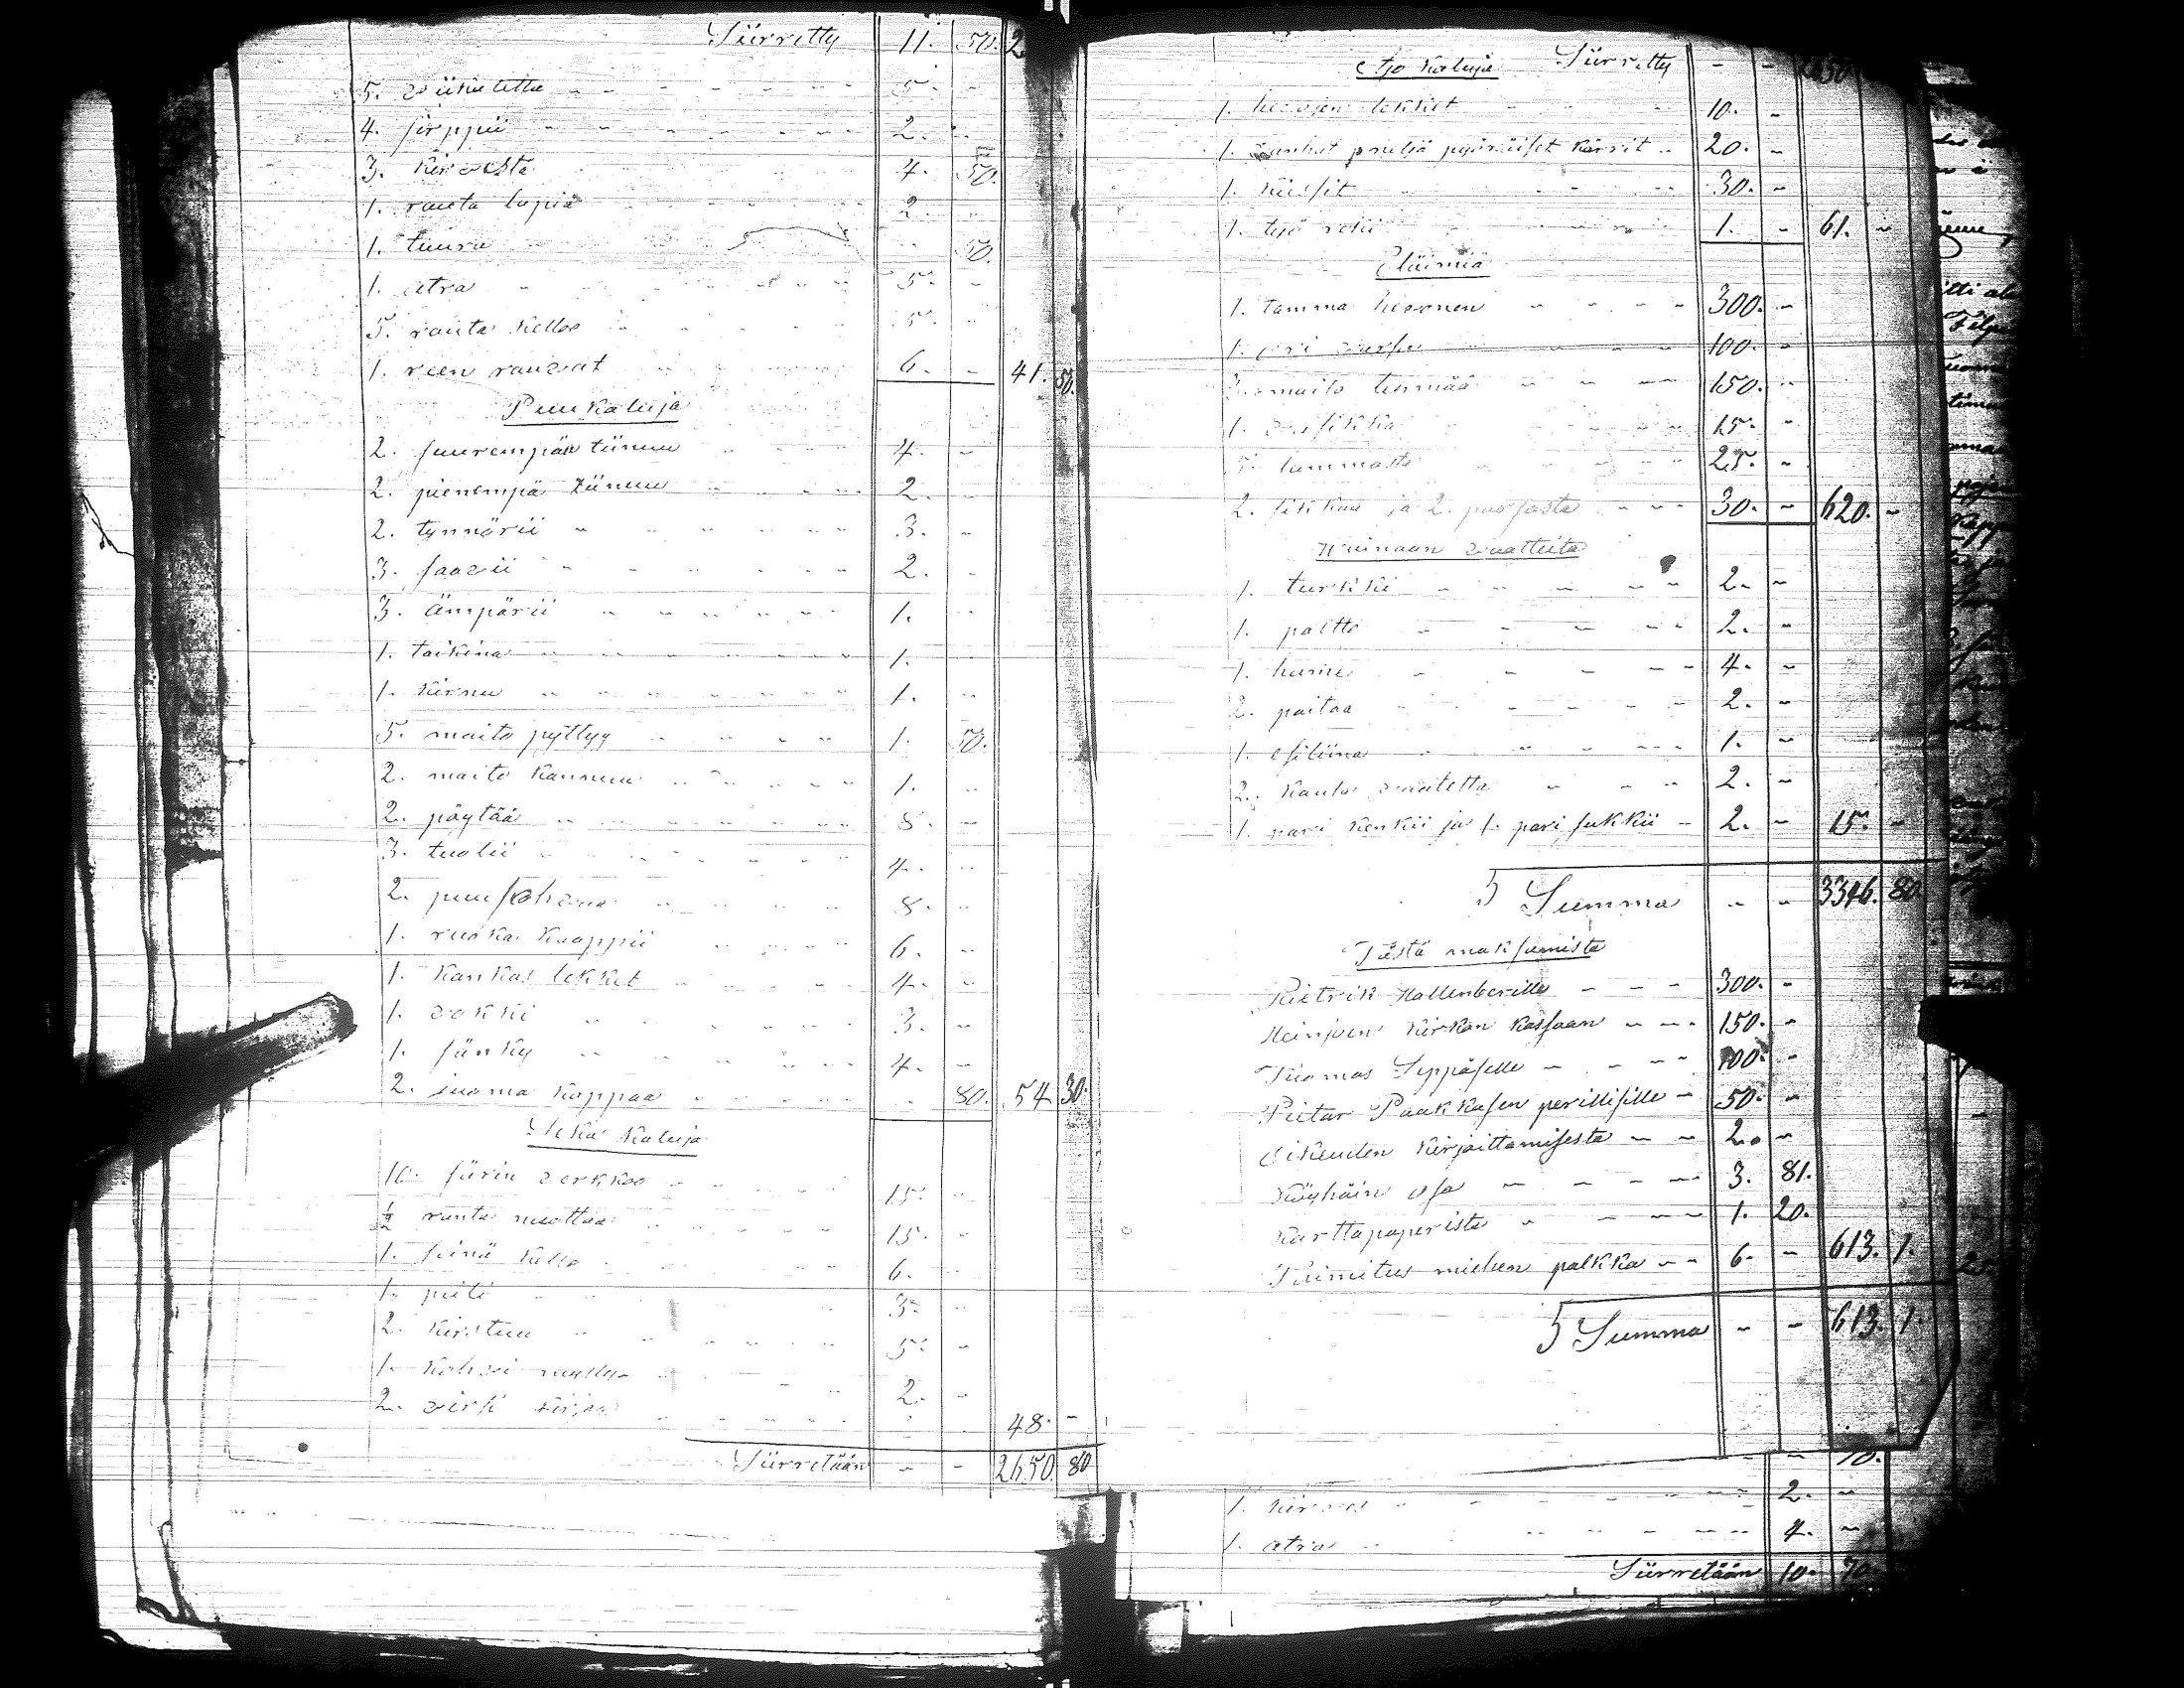 Siirretty 11. 50. 2
5. viikatetta - - 5. -
4. sirppii - - 2. -
3. kirvesta - - 4. 50.
1. rauta lapia - - 2. -
1. tuura - - 50.
1. atra - - 5. -
5. rauta kelloo - - 5. -
1. reen rauvat - - 6. - 41. 50.
Puukaluja
2. suurempää tiinuu - - 4. -
2. pienempä tiinuu - - 2. -
2. tynnörii - - 3. -
3. saavii - - 2. -
3. ämpärii - - 1. -
1. taikina - - 1. -
1. kirnu - - 1. -
5. maito pyttyy - - 1. 50.
2. maito kannuu - - 1. -
2. pöytää - - 8. -
3. tuolii - - 4. -
2. puusohvaa - - 8. -
1. ruoka kaappii - - 6. -
1. kankas lokket - - 4. -
1. vokki - - 3. -
1. sänky - - 4. -
2. juoma kappaa - - 80. 54. 30.
Seka kaluja
10. siirin verkkoo - - 15. -
½ ranta nuottaa - - 15. -
1. seinä kello - - 6. -
1. piili - - 5. -
2. kirstuu - - 5. -
1. kahvi mylly - - 2. -
2. virsi kirjaa - - 48. -
Siirretään - - 2650. 80
Ajo kaluja Siirretty - -
1. hevojen lokket - - 10. -
1. vanhat neljä pyöräiset kärrit - 20. -
1. kiesit - - 30. -
1. työ reki - - 1. - 61. -
Eläimiä
1. tamma hevonen - - 300. -
1. ori varsa - - 100. -
3. maito lehmää - - 150. -
1. vasikka - - 15. -
5. lammasta - - 25. -
2. sikkaa ja 2. porsasta - - 30. - 620. -
Wainaan vaatteita
1. turkki - - 2. -
1. paltto - - 2. -
1. hame - - 4. -
2. paitaa - - 2. -
1. esiliina - - 1. -
2. kaula vaatetta - - 2. -
1. pari kenkii ja 1. pari sukkii - 2. - 15. -
Summa - - 3346. 80.
Tästä maksamista
Pietrik Hallenberille - - 300. -
Heinjoen kirkon kassaan - - 150. -
Tuomas Seppäselle - - 100. -
Pietar Paakkasen perillisille - 50. -
Oikeuden kirjoittamisesta - - 2. -
Köyhäin osa - - 3. 81.
Karttapaperista - - 1. 20.
Toimitus miehen palkka - - 6. - 613. 1.
Summa - - 613. 1.
- - 70.
1. kirves - - 2. -
1. atra - - 4. -
Siirretään 10. 70.